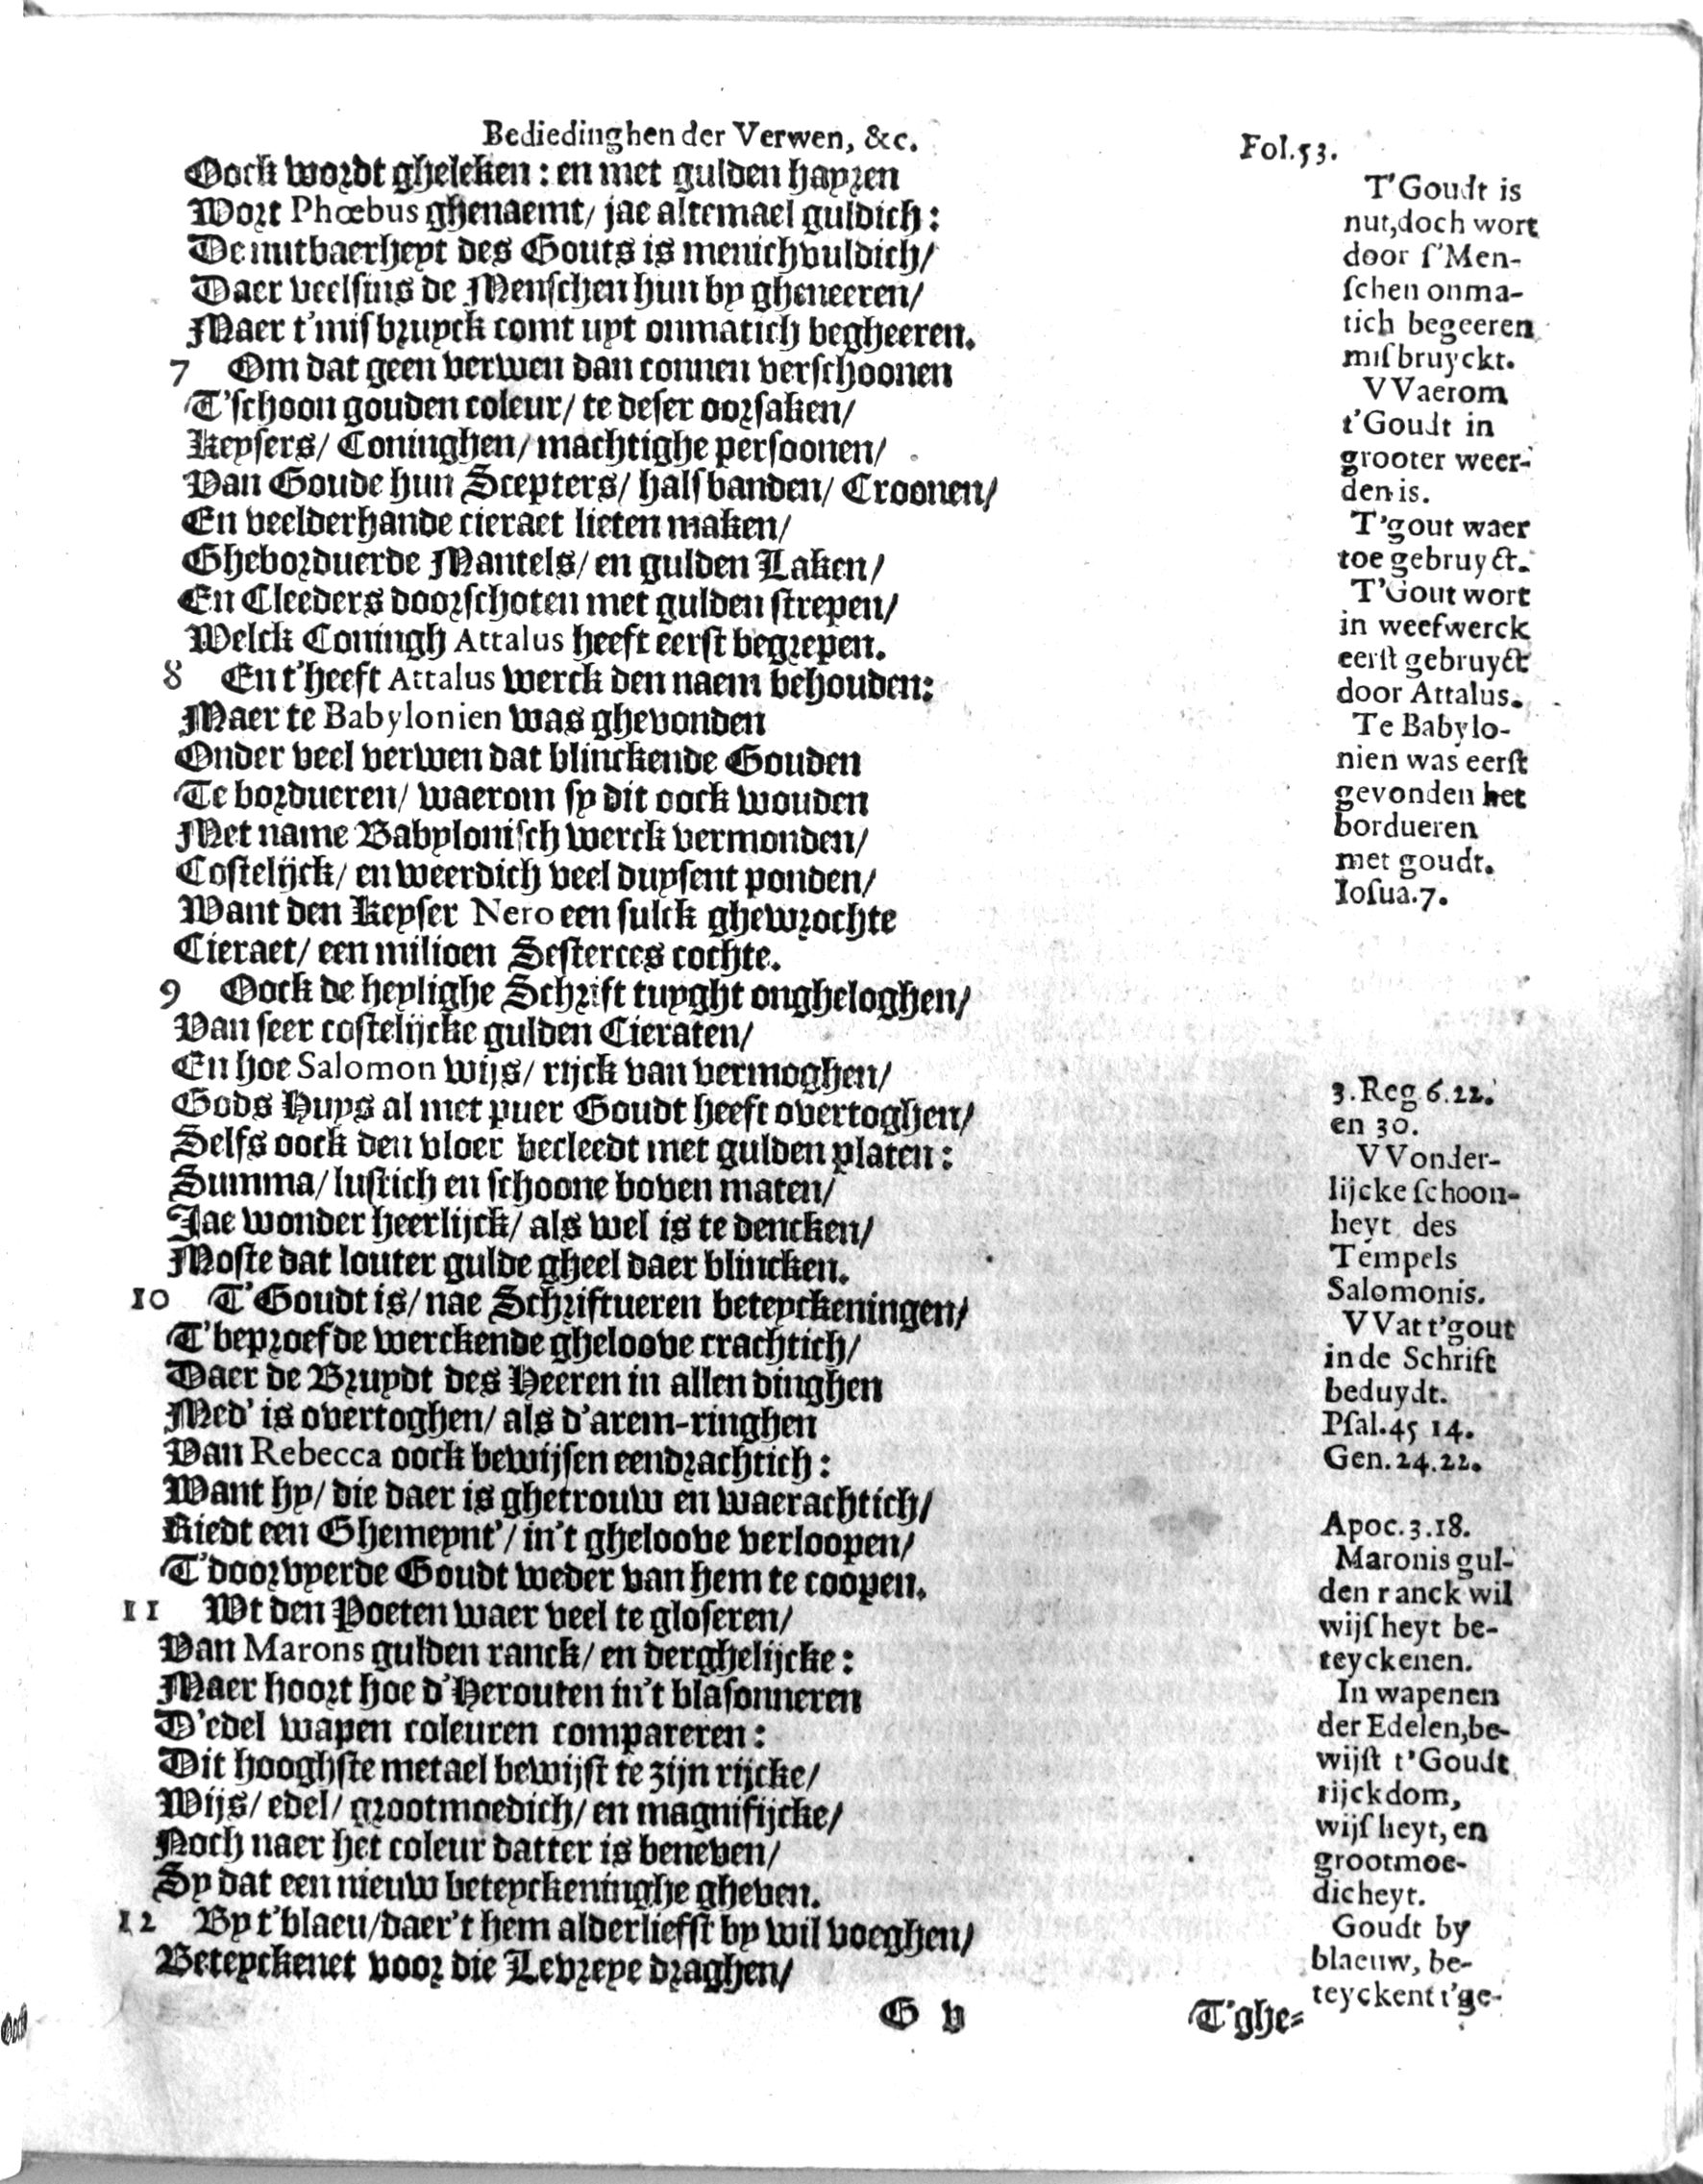 Bediedinghen der Verwen, &c.
Fol.53.
Oock wordt gheleken : en met gulden hayren
Wort Phœbus ghenaemt/ jae altemael guldich:
De nutbaerheyt des Gouts is menichvuldich/
Daer veelsins de Menschen hun by gheneeren/
Maer t'misbruyck comt uyt onmatich begheeren.
7 Om dat geen verwen dan connen verschoonen
T'schoon gouden coleur/ te deser oorsaken/
Keysers/ Coninghen/ machtighe persoonen/
Van Goude hun Scepters/ halsbanden/ Croonen/
En veelderhande cieraet lieten maken/
Gheborduerde Mantels/ en gulden Laken/
En Cleeders doorschoten met gulden strepen/
Welck Coningh Attalus heeft eerst begrepen.
8 En t'heeft Attalus werck den naem behouden:
Maer te Babylonien was ghevonden
Onder veel verwen dat blinckende Gouden
Te bordueren/ waerom sy dit oock wouden
Met name Babylonisch werck vermonden/
Costelijck/ en weerdich veel duysent ponden/
Want den Keyser Nero een sulck ghewrochte
Cieraet/ een milioen Sesterces cochte.
9 Oock de heylighe Schrift tuyght ongheloghen/
Van seer costelijcke gulden Cieraten/
En hoe Salomon wijs/ rijck van vermoghen/
Gods Huys al met puer Goudt heeft overtoghen/
Selfs oock den vloer becleedt met gulden platen:
Summa/ lustich en schoone boven maten/
Jae wonder heerlijck/ als wel is te dencken/
Moste dat louter gulde gheel daer blincken.
10 T'Goudt is/ nae Schriftueren beteyckeningen/
T'beproefde werckende gheloove crachtich/
Daer de Bruydt des Heeren in allen dinghen
Med' is overtoghen/ als d'arem-ringhen
Van Rebecca oock bewijsen eendrachtich:
Want hy/ die daer is ghetrouw en waerachtich/
Riedt een Ghemeynt'/ in't gheloove verloopen/
T'doorvyerde Goudt weder van hem te coopen.
11 Wt den Poeten waer veel te gloseren/
Van Marons gulden ranck/ en derghelijcke:
Maer hoort hoe d'Herouten in't blasonneren
D'edel wapen coleuren compareren:
Dit hooghste metael bewijst te zijn rijcke/
Wijs/ edel/ grootmoedich/ en magnifijcke/
Noch naer het coleur datter is beneven/
Sy dat een nieuw beteyckeninghe gheven.
12 By t'blaeu/daer't hem alderliefst by wil voeghen/
Beteyckenet voor die Levreye draghen/
G v
T'ghe=
T'Goudt is
nut,doch wort
door ſ'Men-
ſchen onma-
tich begeeren
miſbruyckt.
VVaerom
t'Goudt in
grooter weer-
den is.
T'gout waer
toe gebruyct.
T'Gout wort
in weefwerck
eerſt gebruyct
door Attalus.
Te Babylo-
nien was eerſt
gevonden het
bordueren
met goudt.
Ioſua.7.
3.Reg 6.22.
en 30.
VVonder-
lijcke ſchoon-
heyt des
Tempels
Salomonis.
VVat t'gout
in de Schrift
beduydt.
Pſal.45 14.
Gen.24.22.
Apoc.3.18.
Maronis gul-
den ranck wil
wijſheyt be-
teyckenen.
In wapenen
der Edelen,be-
wijſt t'Goudt
rijckdom,
wijſheyt, en
grootmoe-
dicheyt.
Goudt by
blaeuw, be-
teyckent t'ge-